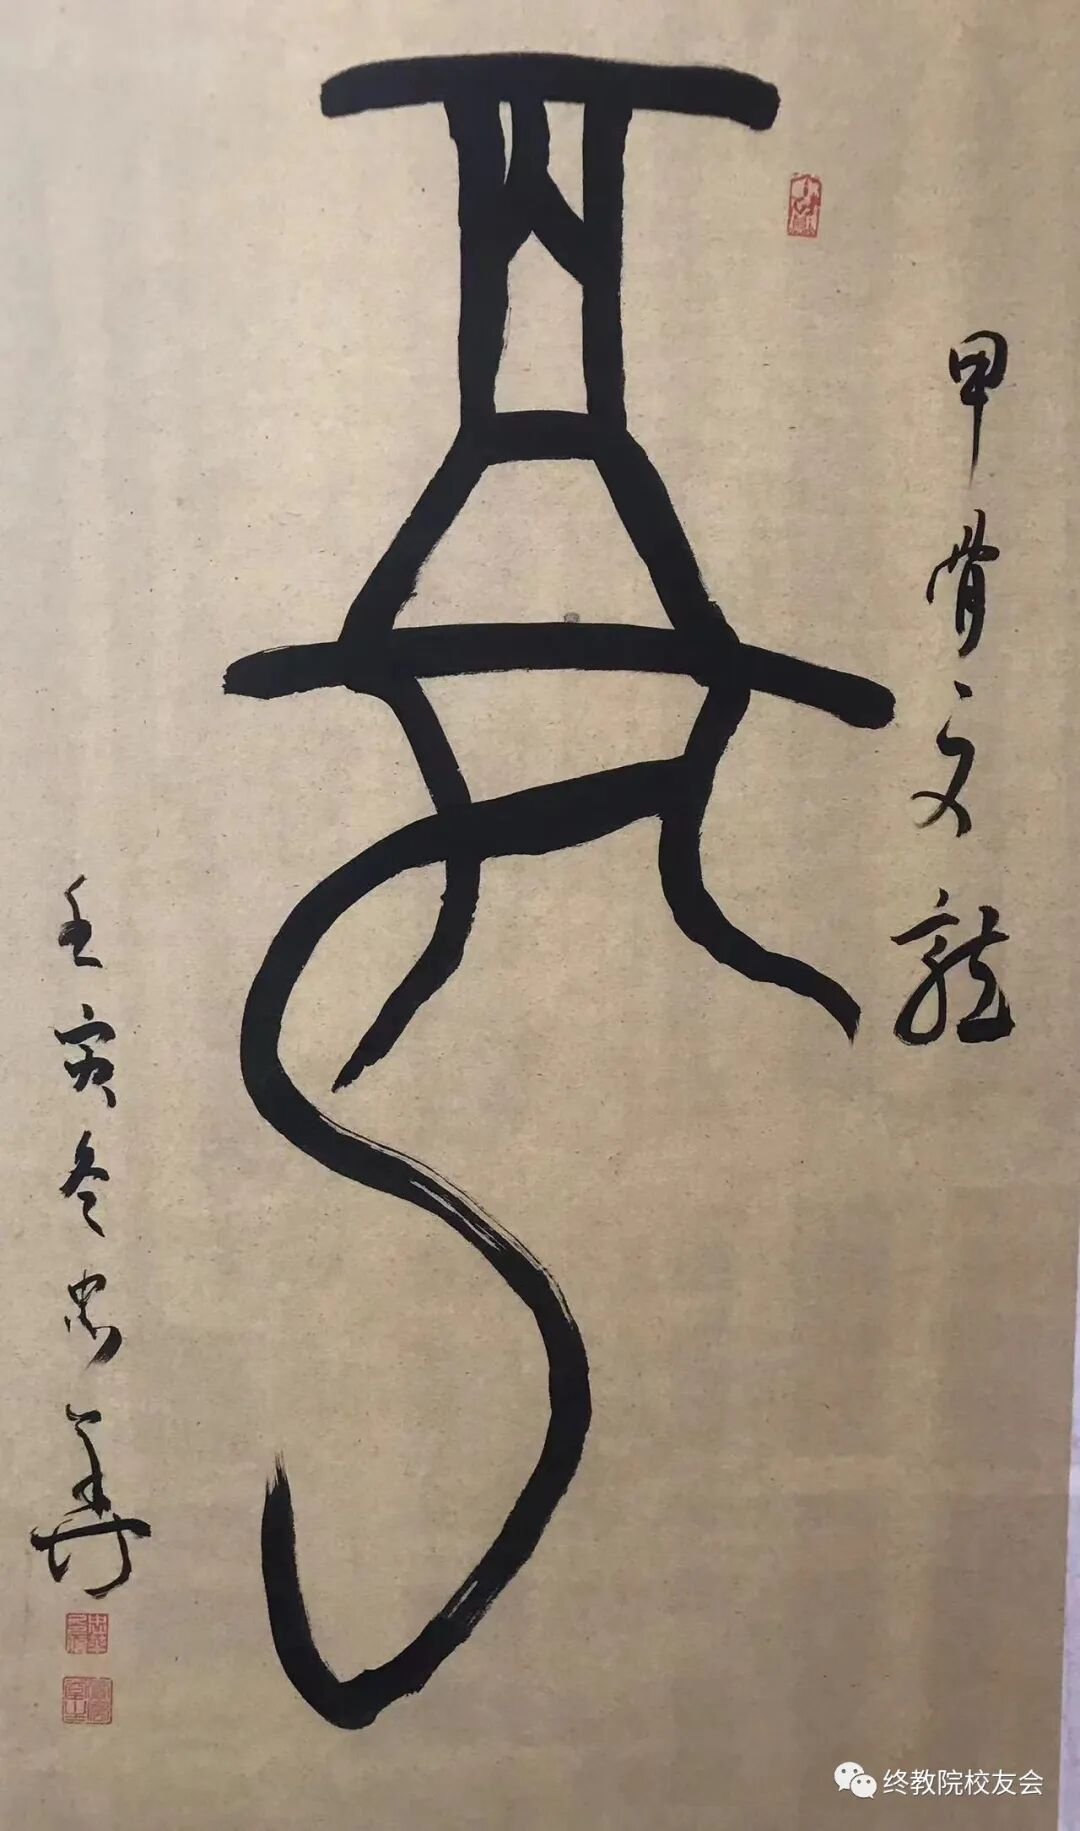 龍
甲骨文龍
壬寅冬忠華
终教院校友会